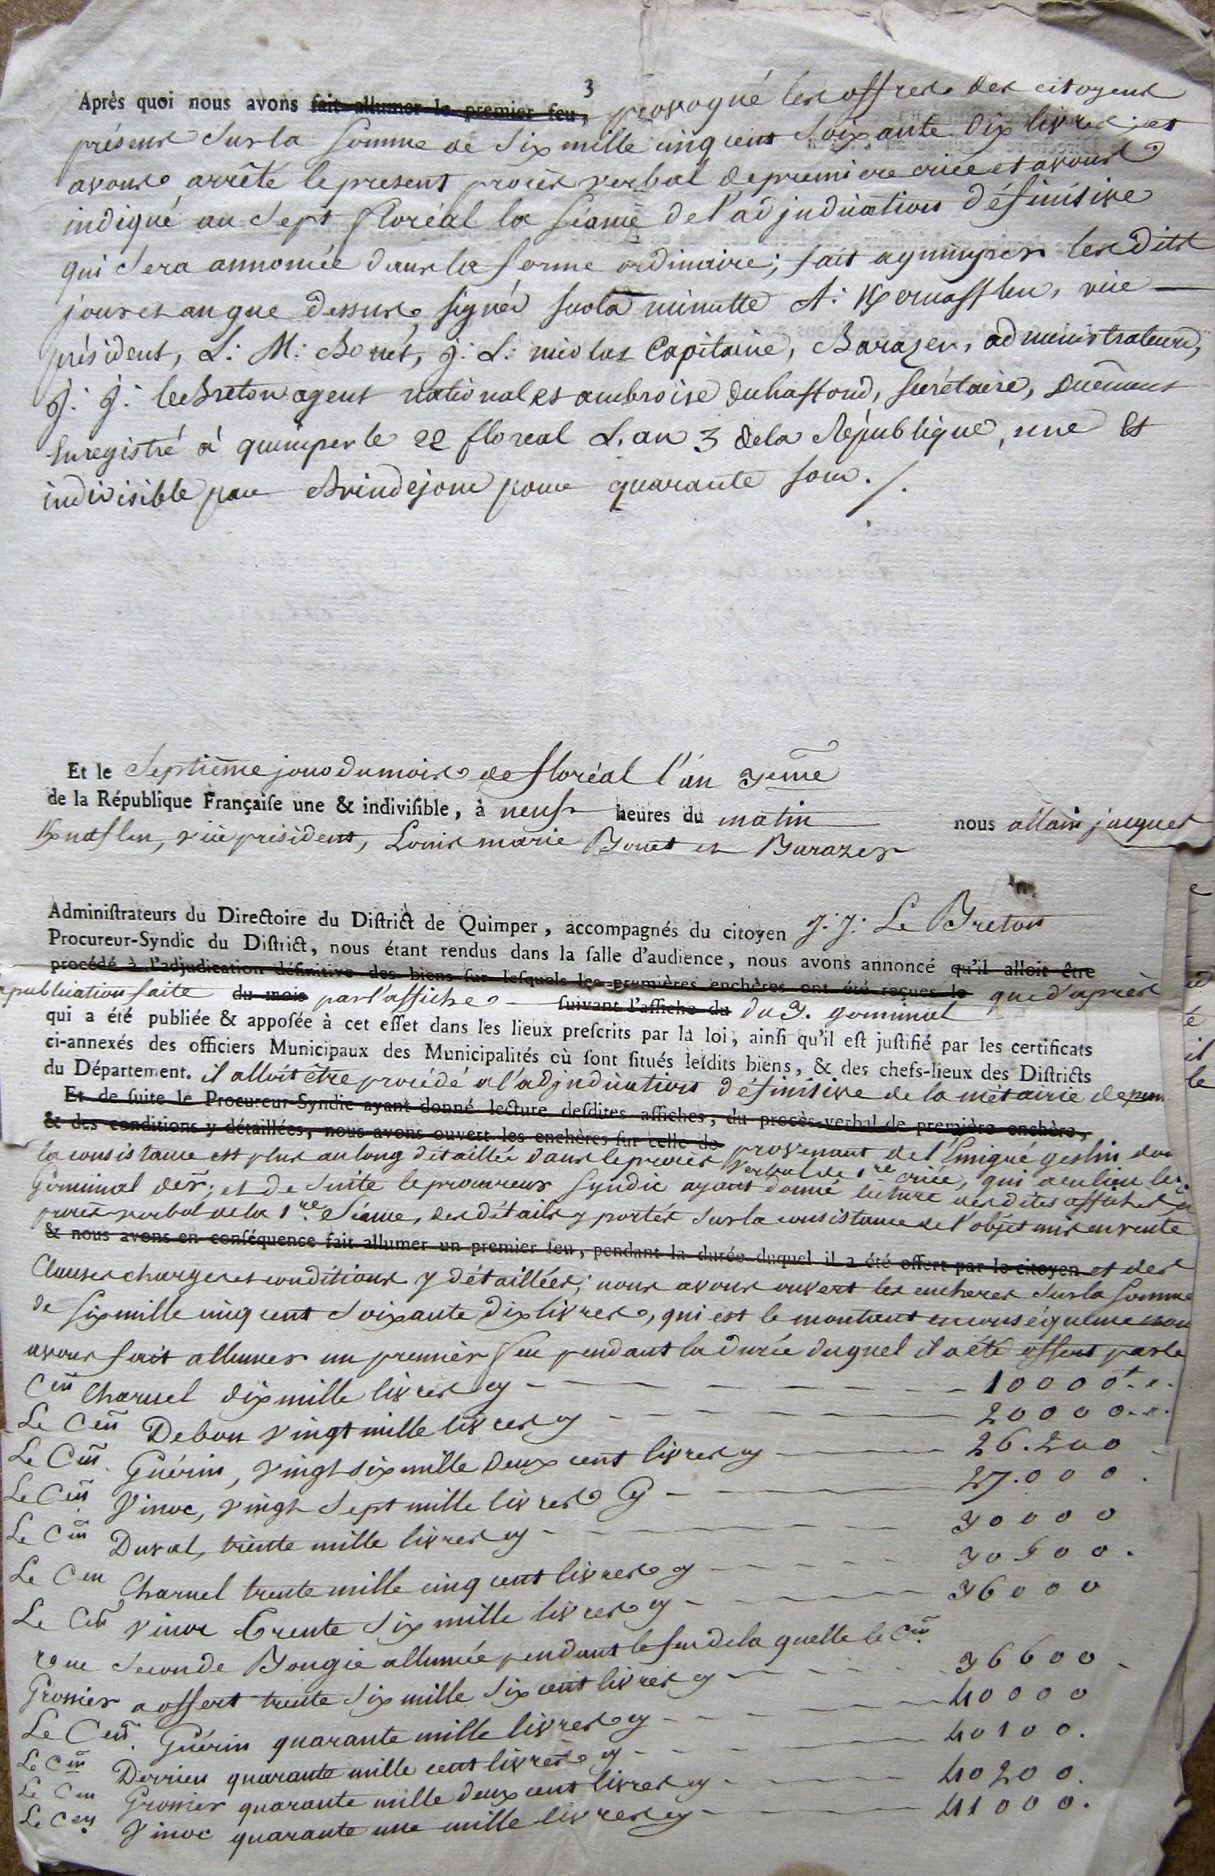 3
Après quoi nous avons fait allumer le premier feu, provoqué les offres des citoyens
présens sur la somme de six mille cinq cent soixante dix livres; et
avons arrêté le present procès verbal de premiere criée et avons
indiqué au sept floréal la séance de l'adjudication définitive
qui sera annoncée dans la forme ordinaire; fait a quimper les dits
jour et an que dessus, signé sur la minutte A: Kernafflen, vice
président, L: M: Bonet, J: L: nicolas Capitaine, Barazer, administrateurs,
J: J: Le Breton agent national et ambroise duhaffond, secrétaire, duëment
Enregistré à quimper le 22 floreal L'an 3 de la République, une et
indivisible par Brindejonc pour quarante sous./.
Et le septième jour du mois de floréal l'an 3eme
de la République Françaiſe une & indiviſible, à neuf heures du matin nous allain jacques
Kernaflen, vice président, Louis marie Bonet et Barazer
Adminiſtrateurs du Directoire du Diſtrict de Quimper, accompagnés du citoyen J: J: Le Breton
Procureur-Syndic du Diſtrict, nous étant rendus dans la ſalle d'audience, nous avons annoncé qu'il alloit être
procédé à l'adjudication définitive des biens ſur leſquels les premières enchères ont été reçues le que d'après
publication faite du mois par l'affiche ſuivant l'affiche du du 3. germinal
qui a été publiée & appoſée à cet effet dans les lieux preſcrits par la loi, ainſi qu'il eſt juſtifié par les certificats
ci-annexés des officiers Municipaux des Municipalités où ſont ſitués leſdits biens, & des chefs-lieux des Diſtricts
du Département. il alloit être procédé a l'adjudication définitive de la métairie de
Et de ſuite le Procureur-Syndic ayant donné lecture deſdites affiches, du procès-verbal de première enchère,
& des conditions y détaillées, nous avons ouvert les enchères ſur celle de provenant de l'Emigré geslin dont
la consistance est plus au long détaillée dans le procès verbal de 1re criée, qui a eu lieu le
Germinal der; et de suite le procureur syndic ayant donné lecture desdites affiches
procès verbal de la 1re séance, des détails y portés sur la consistance de l'objet mis en vente
& nous avons en conſéquence fait allumer un premier feu, pendant la durée duquel il a été offert par le citoyen et des
Clauses charges et conditions y détaillées; nous avons ouvert les encheres sur la somme
de six mille cinq cent soixante dix livres, qui est le montant en conséquence nous
avons fait allumer un premier feu pendant la durée duquel il a été offert par le
Cen Charuel dix mille livres cy 10000
Le Cen Debon vingt mille livres cy 20000
Le Cen Guérin, vingt six mille deux cent livres cy 26.200
Le Cen Vinoc, vingt sept mille livres cy 27.000
Le Cen Duval, trente mille livres cy 30000
Le Cen Charuel trente mille cinq cent livres cy 30500
Le Cen Vinoc trente six mille livres cy 36000
seconde Bougie allumée pendant le feu de la quelle le Cen
Grossier a offert trente six mille six cent livres cy 36600
Le Cen Guérin quarante mille livres cy 40000
Le Cen Derrien quarante mille cent livres cy 40100.
Le Cen Grossier quarante mille deux cent livres cy 40200.
Le Cen Vinoc quarante une mille livres cy 41000.